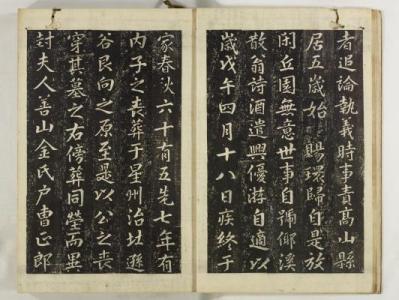 者追論執義時事責高山縣
居五歲始賜環歸自是放
閑丘園無意世事自號倻溪
散翁詩酒遣興優游自適以
歲戊午四月十八日疾終于
家春秋六十有五先七年有
内子之喪葬于星州治北遜
谷艮向之原至是以公之喪
穿其墓之右傍葬同塋而異
封夫人善山金氏戶曹正郎